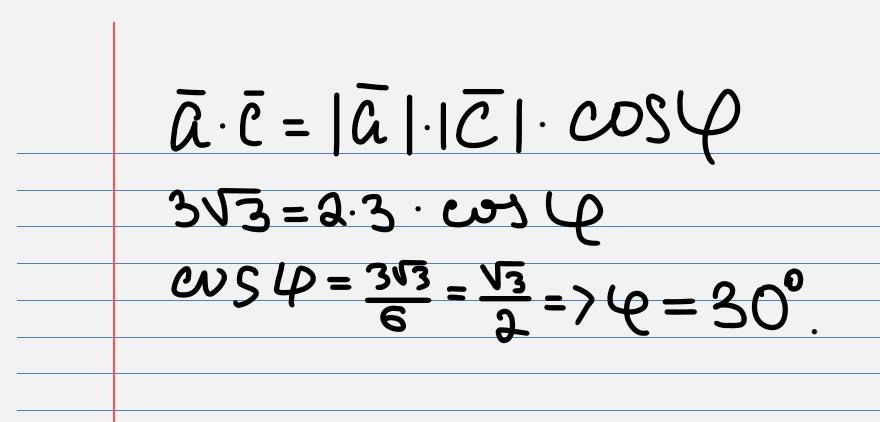 ā · c̄ = |ā| · |c̄| · cosφ
3√3 = 2 · 3 · cos φ
cos φ = 3√3/6 = √3/2 => φ = 30°.